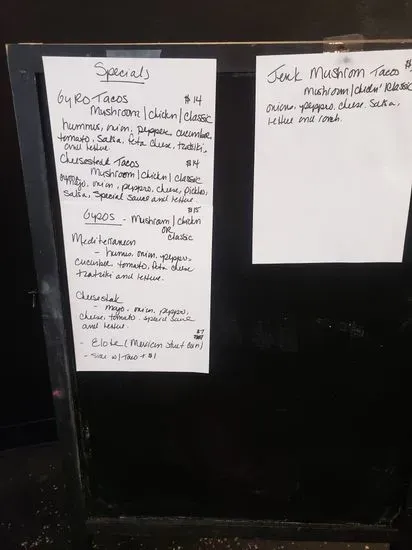 Specials
Gyro Tacos $14
Mushroom / chicken / classic
hummus, onion, pepper, cucumber
tomato, salsa, feta cheese, tzatziki,
and lettuce.
Cheesesteak Tacos $14
Mushroom / chicken / classic
mayo, onion, peppers, cheese, pickles,
salsa, special sauce and lettuce.
$15
Gyros - Mushroom / chicken
or
classic
Mediterranean
- humus, onion, pepper,
cucumber tomato, feta cheese
tzatziki and lettuce.
Cheesesteak
- mayo, onion, peppers,
cheese, tomato, special sauce
and lettuce.
$7
- Elote (Mexican street corn)
- Side w/ Taco + $1
Jerk Mushroom Tacos $
Mushroom / chicken / classic
onions, peppers, cheese, salsa,
lettuce and ranch.